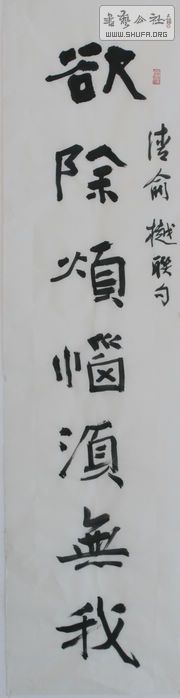 欲除煩惱須無我
清俞樾聯句
書藝公社
WWW.SHUFA.ORG